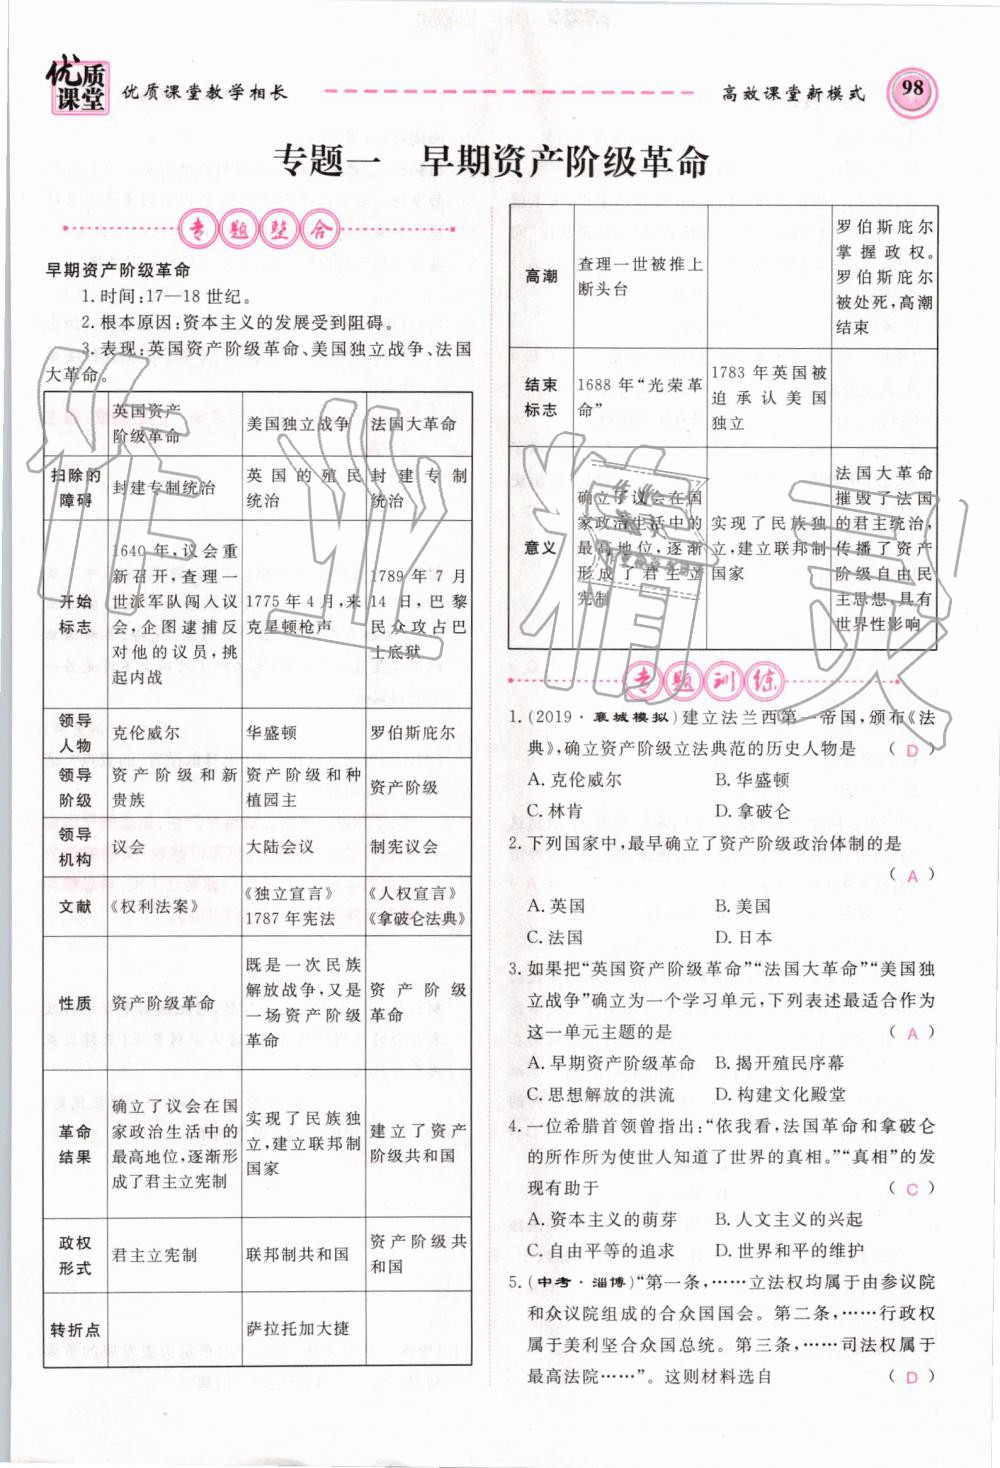 优质课堂
优质课堂教学相长
高效课堂新模式
98
专题一 早期资产阶级革命
专题整合
早期资产阶级革命
1. 时间:17—18 世纪。
2. 根本原因:资本主义的发展受到阻碍。
3. 表现:英国资产阶级革命、美国独立战争、法国
大革命。
英国资产
阶级革命
美国独立战争
法国大革命
扫除的
障碍
封建专制统治
英国的殖民
统治
封建专制
统治
开始
标志
1640 年,议会重
新召开,查理一
世派军队闯入议
会,企图逮捕反
对他的议员,挑
起内战
1775 年 4 月,来
克星顿枪声
1789 年 7 月
14 日,巴黎
民众攻占巴
士底狱
领导
人物
克伦威尔
华盛顿
罗伯斯庇尔
领导
阶级
资产阶级和新
贵族
资产阶级和种
植园主
资产阶级
领导
机构
议会
大陆会议
制宪议会
文献
《权利法案》
《独立宣言》
1787 年宪法
《人权宣言》
《拿破仑法典》
性质
资产阶级革命
既是一次民族
解放战争,又是
一场资产阶级
革命
资产阶级
革命
革命
结果
确立了议会在国
家政治生活中的
最高地位,逐渐形
成了君主立宪制
实现了民族独
立,建立联邦制
国家
建立了资产
阶级共和国
政权
形式
君主立宪制
联邦制共和国
资产阶级共
和国
转折点
萨拉托加大捷
高潮
查理一世被推上
断头台
罗伯斯庇尔
掌握政权。
罗伯斯庇尔
被处死,高潮
结束
结束
标志
1688 年“光荣革
命”
1783 年英国被
迫承认美国
独立
意义
确立了议会在国
家政治生活中的
最高地位,逐渐
形成了君主立
宪制
实现了民族独
立,建立联邦制
国家
法国大革命
摧毁了法国
的君主统治,
传播了资产
阶级自由民
主思想,具有
世界性影响
专题训练
1. (2019·襄城模拟)建立法兰西第一帝国,颁布《法
典》,确立资产阶级立法典范的历史人物是 ( D )
A. 克伦威尔 B. 华盛顿
C. 林肯 D. 拿破仑
2. 下列国家中,最早确立了资产阶级政治体制的是
( A )
A. 英国 B. 美国
C. 法国 D. 日本
3. 如果把“英国资产阶级革命”“法国大革命”“美国独
立战争”确立为一个学习单元,下列表述最适合作为
这一单元主题的是 ( A )
A. 早期资产阶级革命 B. 揭开殖民序幕
C. 思想解放的洪流 D. 构建文化殿堂
4. 一位希腊首领曾指出:“依我看,法国革命和拿破仑
的所作所为使世人知道了世界的真相。”“真相”的发
现有助于 ( C )
A. 资本主义的萌芽 B. 人文主义的兴起
C. 自由平等的追求 D. 世界和平的维护
5. (中考·淄博)“第一条,……立法权均属于由参议院
和众议院组成的合众国国会。第二条,……行政权
属于美利坚合众国总统。第三条,……司法权属于
最高法院……”。这则材料选自 ( D )
作业精灵